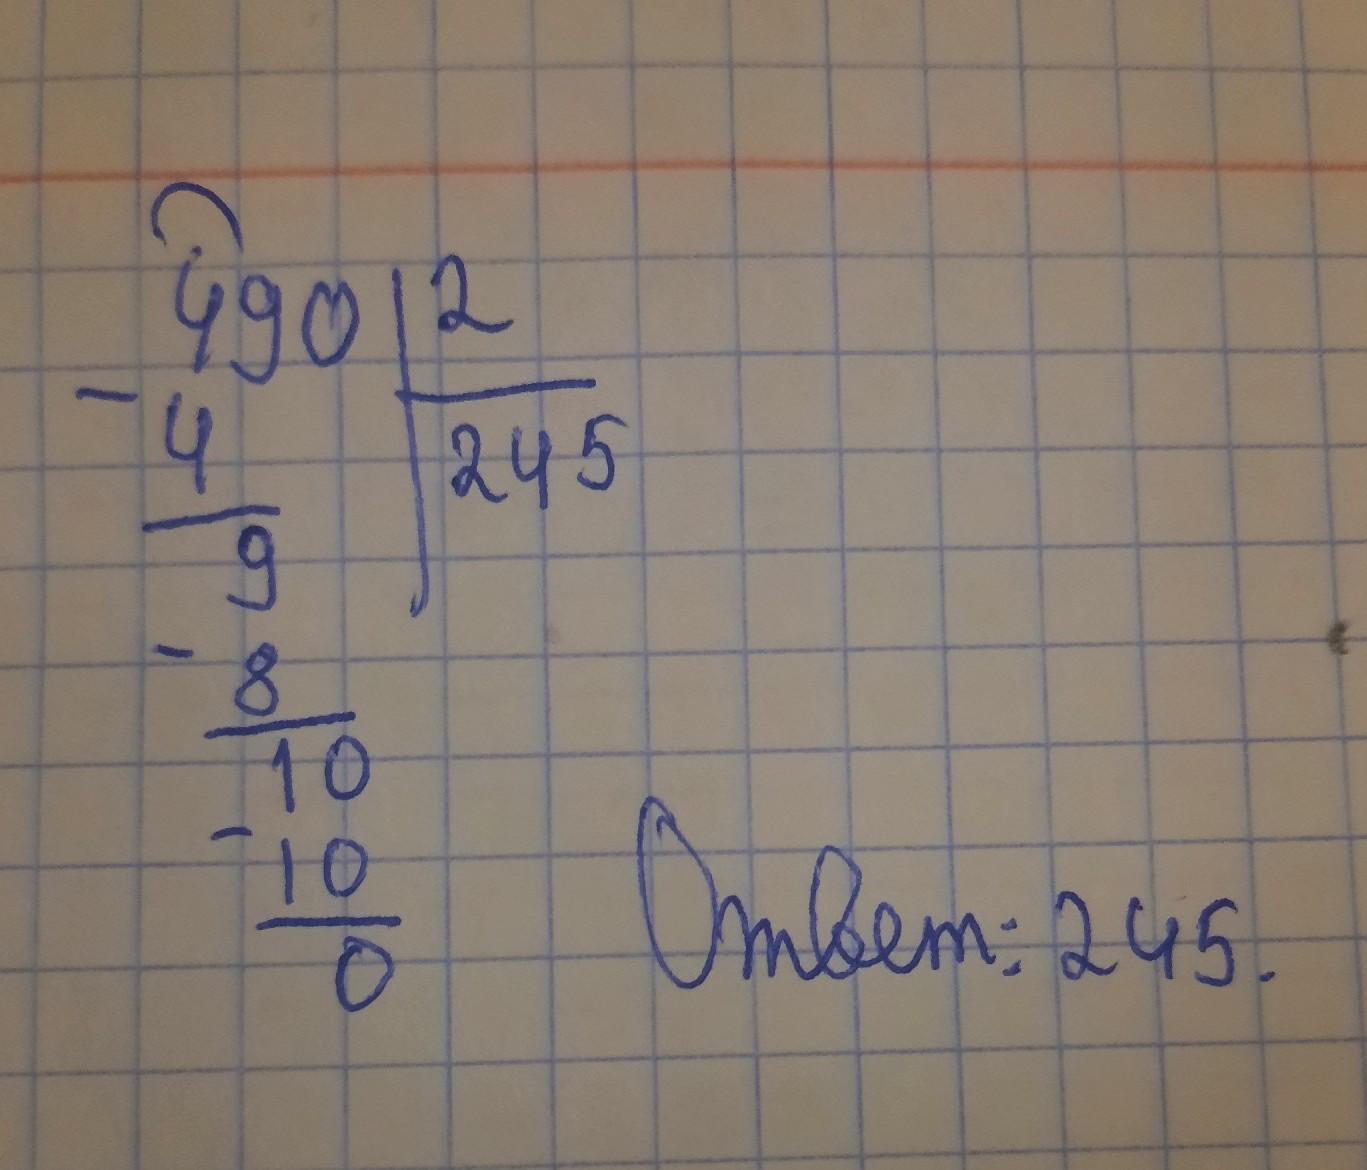 490 | 2
- 4 | 245
9
- 8
10
- 10
0
Ответ: 245.